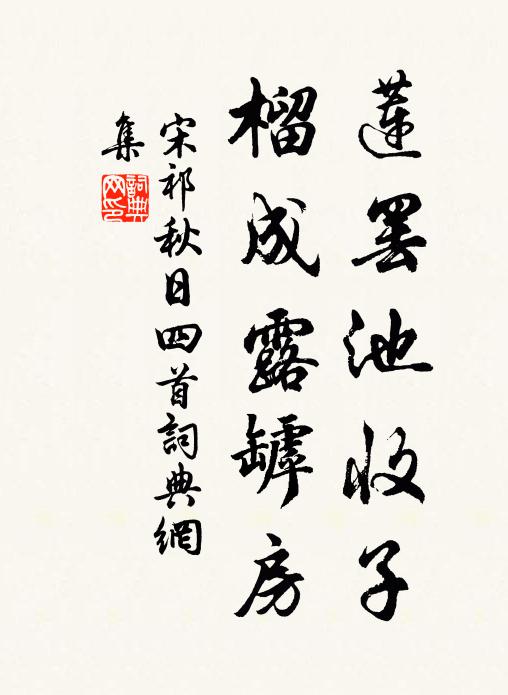 蓮罷池收子
榴成露罅房
宋祁秋日四首詞典網
集
詞典網印